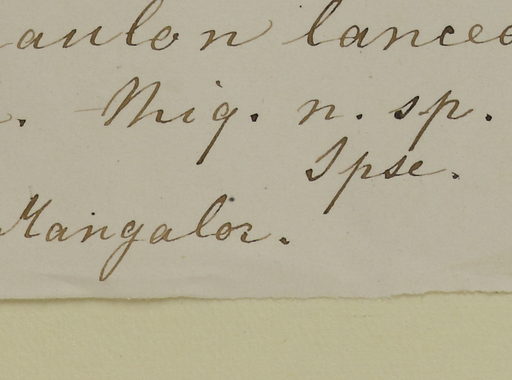 aulon lanceo
. Miq. n. sp.
Ipse.
Mangalor.